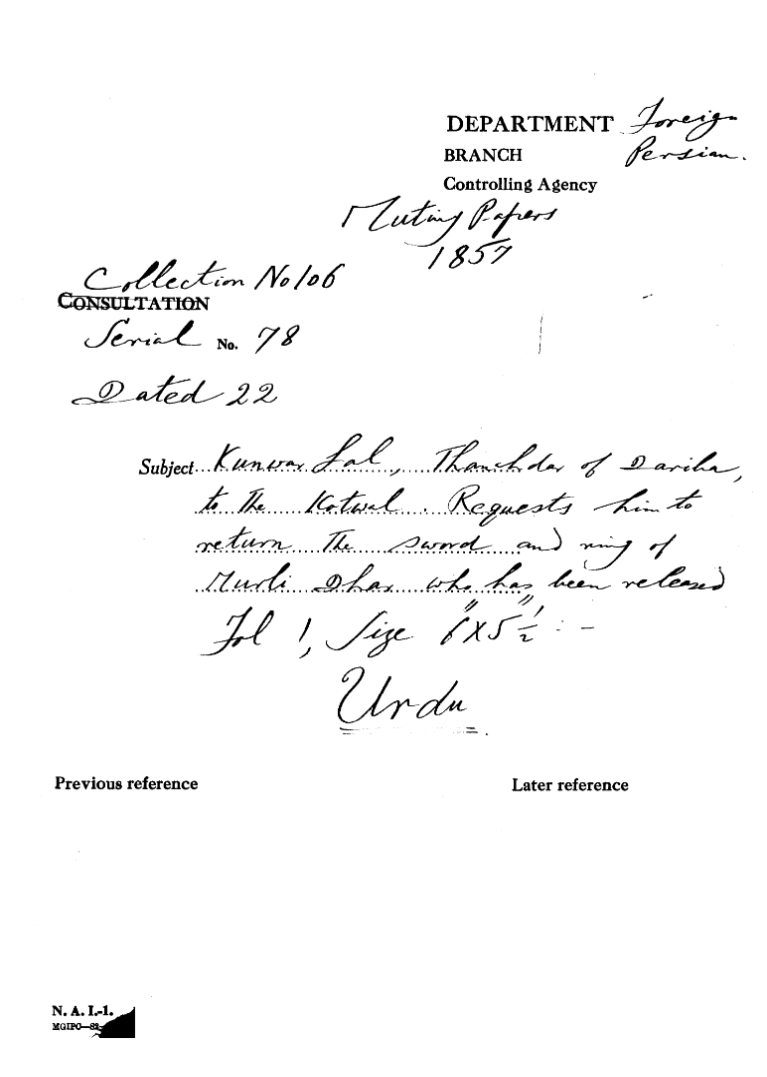 DEPARTMENT Foreign
BRANCH Persian.
Controlling Agency
Mutiny Papers
1857
Collection No 106
CONSULTATION
Serial No. 78
Dated 22
Subject Kunwar Lal, Thanehdar of Dariba,
to the Kotwal. Requests him to
return the sword and ring of
Murli Dhar who has been released
Fol 1, Size 6"X5"½ :-
Urdu
Previous reference
Later reference
N. A. I.-1.
MGIPC—82